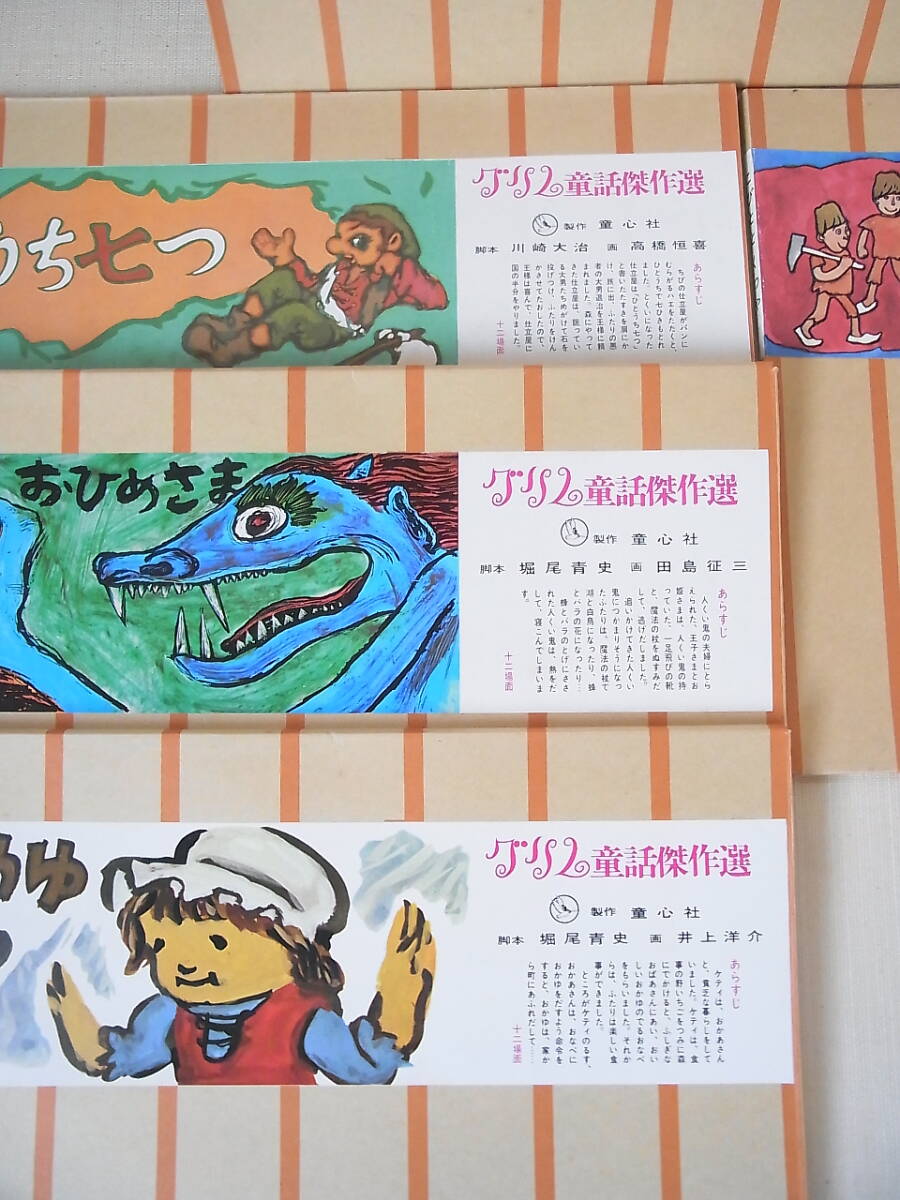 うち七つ
グリム童話傑作選
製作 童心社
脚本 川崎大治 画 高橋恒喜
あらすじ
ちびの仕立屋がパンに
むらがるハエをたたくと、
ひとうちで七ひきもとれ
ました。とくいになった
仕立屋は、「ひとうち七つ」
と書いたたすきを肩にか
け、旅に出、ふたりの悪
者の大男退治を王様に頼
まれました。森にやって
きた仕立屋は、眠ってい
る大男たちめがけて石を
投げつけ、ふたりをけん
かさせてたおしたので、
王様は喜んで、仕立屋に
国の半分をやりました。
十二場面
おひめさま
グリム童話傑作選
製作 童心社
脚本 堀尾青史 画 田島征三
あらすじ
人くい鬼の夫婦にとら
えられた、王子さまとお
姫さまは、人くい鬼の持
っていた、一足飛びの靴
と、魔法の杖をぬすみだ
して、逃げだしました。
追いかけてきた人くい
鬼につかまりそうになっ
たふたりは、魔法の杖で
湖と白鳥になったり、蜂
とバラの花になったり…
蜂とバラのとげにささ
れた人くい鬼は、熱をだ
して、寝こんでしまいま
す。
十二場面
めゆ
グリム童話傑作選
製作 童心社
脚本 堀尾青史 画 井上洋介
あらすじ
ケティは、おかあさん
と、貧乏な暮らしをして
いました。ケティは、食
事の野いちごをつみに森
にでかけると、ふしぎな
おばあさんにあい、おい
しいおかゆのでるおなべ
をもらいました。それか
らは、ふたりは楽しい食
事ができました。
ところがケティのるす、
おかあさんは、おなべに
おかゆをだすよう命令を
すると、おかゆは、家か
ら町にあふれだして……
十二場面